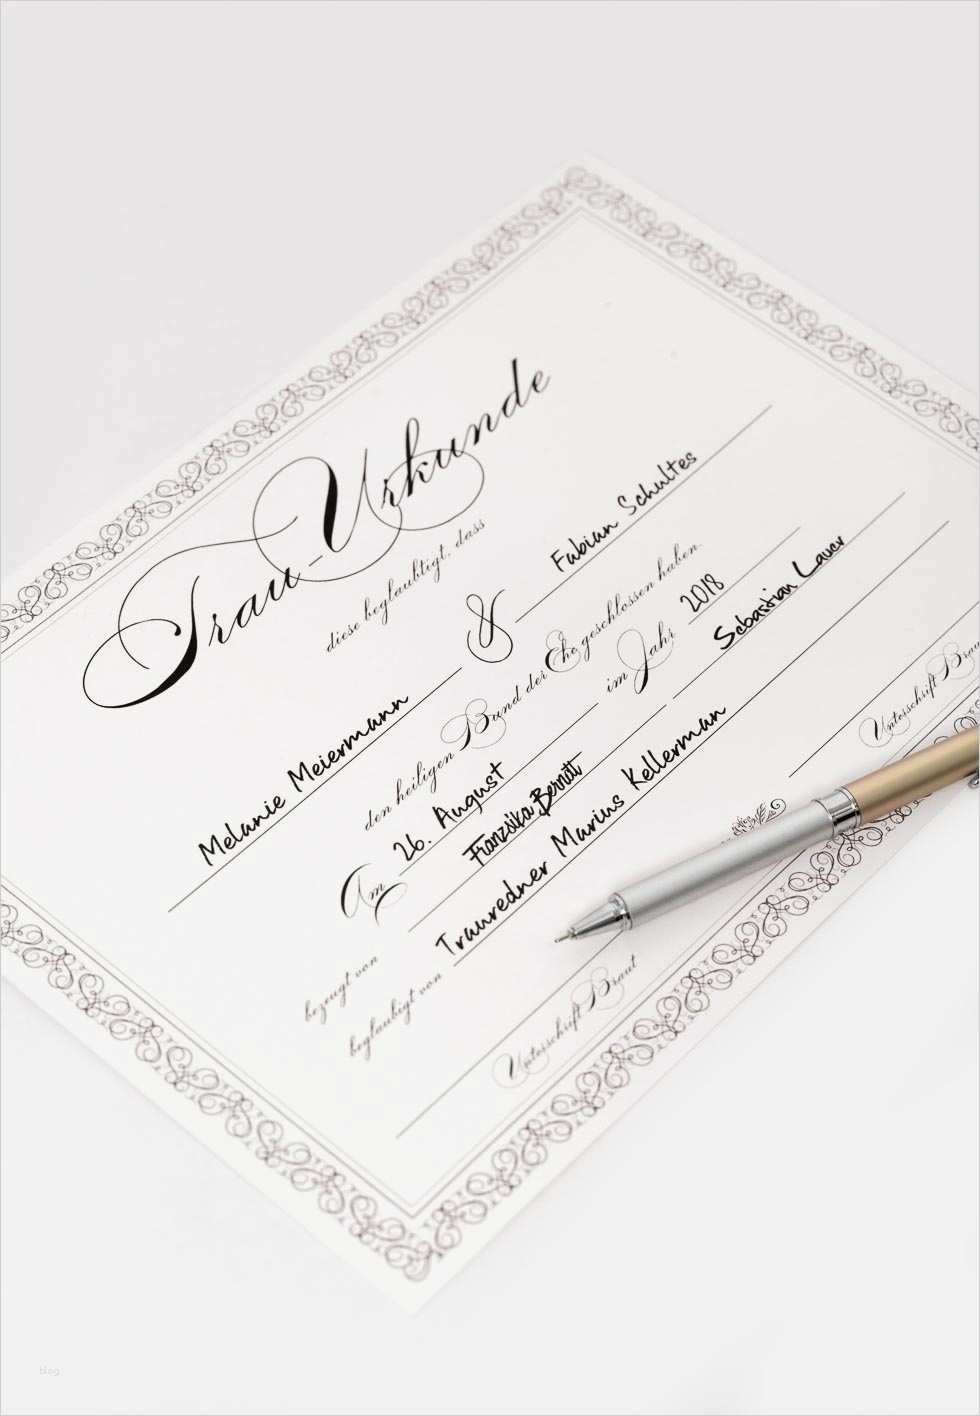 Trau-Urkunde
diese beglaubtigt, dass
Melanie Meiermann & Fabian Schultes
den heiligen Bund der Ehe geschlossen haben.
Am 26. August im Jahr 2018
bezeugt von Franziska Bernutt Sebastian Lauer
beglaubigt von Trauredner Marius Kellerman
Unterschrift Braut Unterschrift Braut
blog